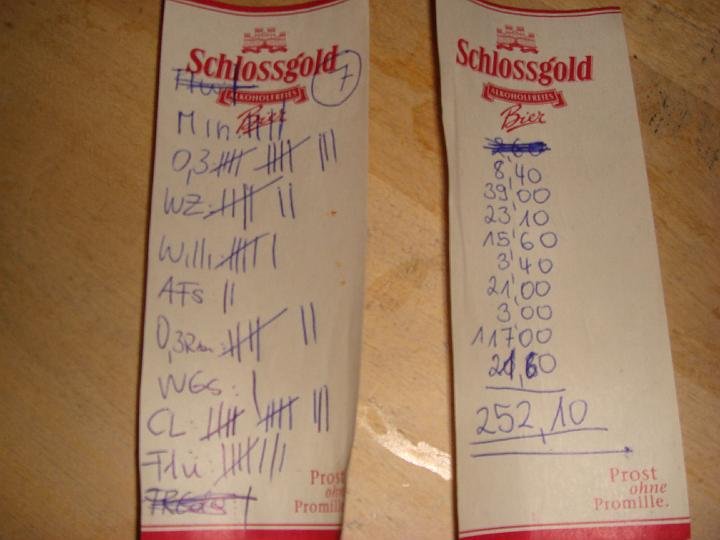 Schlossgold
ALKOHOLFREIES
Bier
7
Min
0,3
WZ:
Willi:
AFs
0,3
WGs:
CL:
Flu
Prost
ohne
Promille.
Schlossgold
ALKOHOLFREIES
Bier
8,40
39,00
23,10
15,60
3,40
21,00
3,00
117,00
21,60
252,10
Prost
ohne
Promille.